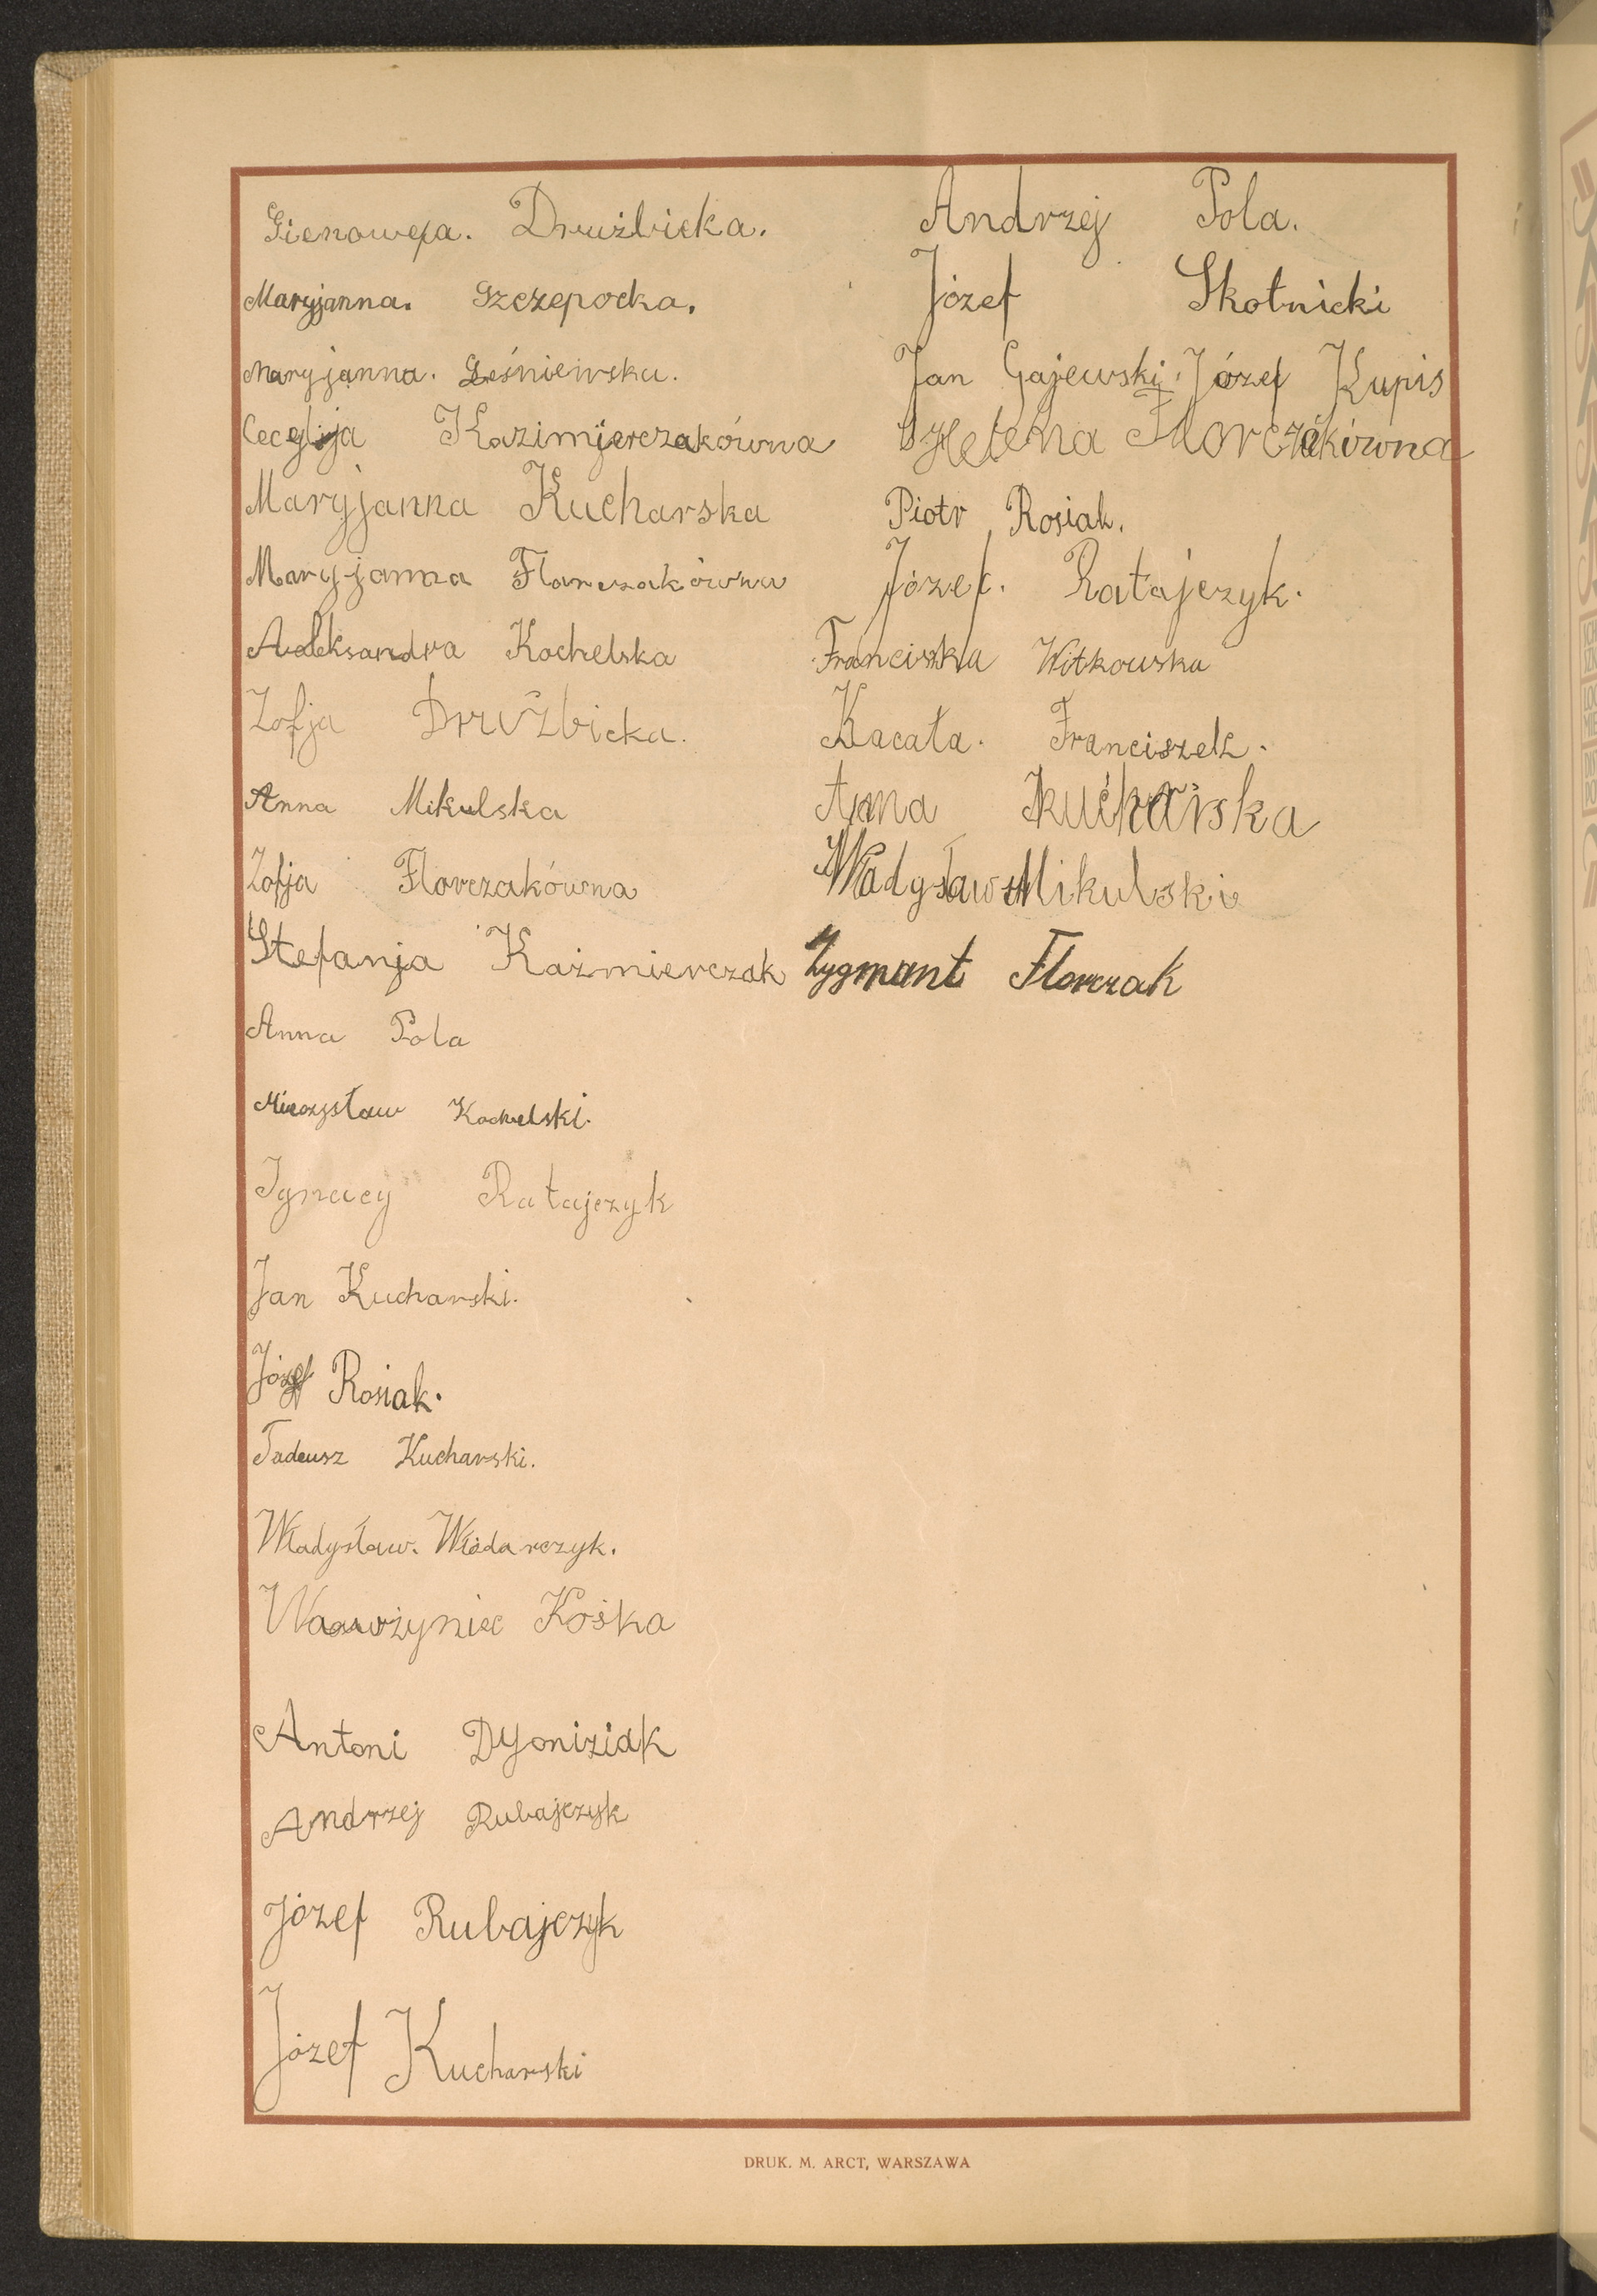 Gienowefa. Drużbicka.
Maryjanna. Szczepocka.
Maryjanna. Leśniewska.
Cecylija Kazimjerczakówna
Maryjanna Kucharska
Maryjanna Florczakówna
Aaleksandra Kochelska
Zofja Drużbicka.
Anna Mikulska
Zofja Florczakówna
Stefanja Kaźmierczak
Anna Pola
Mieczysław Kochelski.
Ignacy Ratajczyk
Jan Kucharski.
Józef Rosiak.
Tadeusz Kucharski.
Władysław. Włodarczyk.
Wawrzyniec Kośka
Antoni Dyoniziak
Andrzej Rubajczyk
Józef Rubajczyk
Józef Kucharski
Andrzej Pola.
Józef Skotnicki
Jan Gajewski. Józef Kupis
Helena Florczakówna
Piotr Rosiak.
Józef. Ratajczyk.
Franciszka Witkowska
Kacała. Franciszek.
Anna Kucharska
Władysław Mikulski
Zygmunt Florczak
DRUK. M. ARCT, WARSZAWA